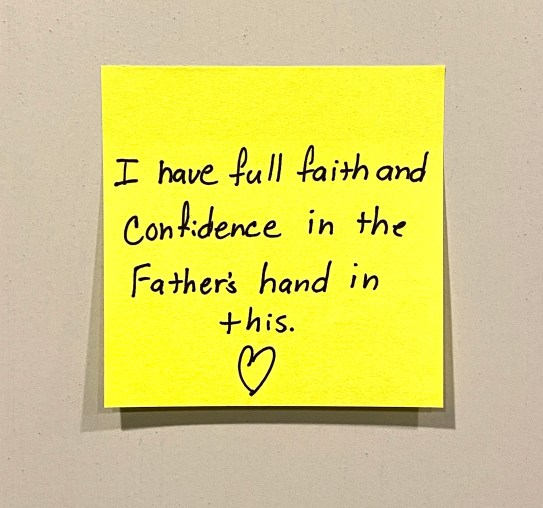 I have full faith and
Confidence in the
Father's hand in
this.